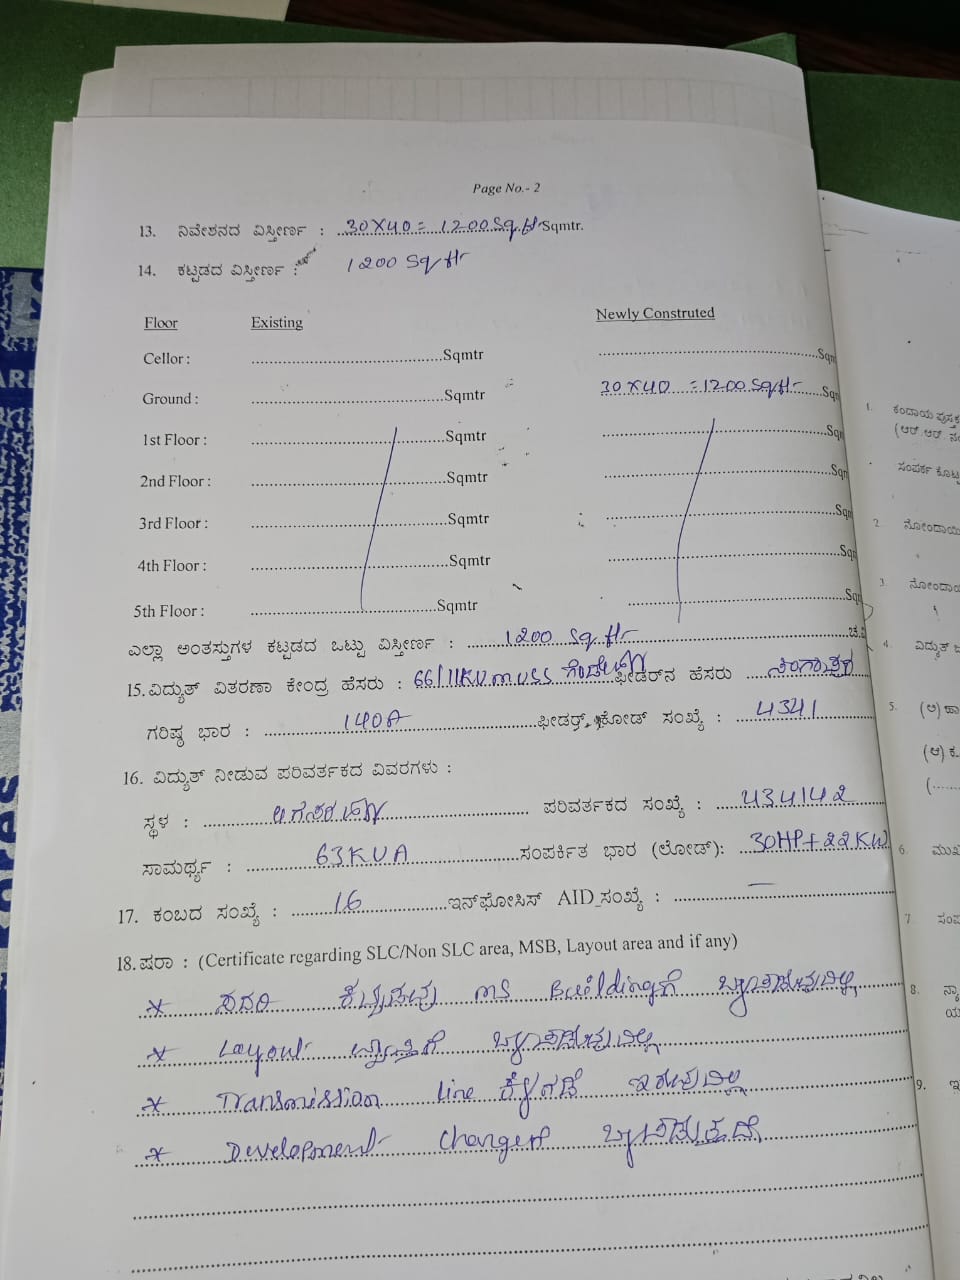 Page No.- 2
13. ನಿವೇಶನದ ವಿಸ್ತೀರ್ಣ : 30X40 = 1200 Sq.ft Sqmtr.
14. ಕಟ್ಟಡದ ವಿಸ್ತೀರ್ಣ : 1200 Sq ft
Floor Existing Newly Construted
Cellor : ........Sqmtr ........Sqm
Ground : ........Sqmtr 30X40 = 1200 Sq ft Sqm
1st Floor : ........Sqmtr ........Sqm
2nd Floor : ........Sqmtr ........Sqm
3rd Floor : ........Sqmtr ........Sqm
4th Floor : ........Sqmtr ........Sqm
5th Floor : ........Sqmtr ........Sqm
ಎಲ್ಲಾ ಅಂತಸ್ತುಗಳ ಕಟ್ಟಡದ ಒಟ್ಟು ವಿಸ್ತೀರ್ಣ : 1200 Sq. ft ಚ.
15. ವಿದ್ಯುತ್ ವಿತರಣಾ ಕೇಂದ್ರ ಹೆಸರು : 66/11KV MUSS ಫೀಡರ್‌ನ ಹೆಸರು
ಗರಿಷ್ಠ ಭಾರ : 140A ಫೀಡರ್ ಕೋಡ್ ಸಂಖ್ಯೆ : 4341
16. ವಿದ್ಯುತ್ ನೀಡುವ ಪರಿವರ್ತಕದ ವಿವರಗಳು :
ಸ್ಥಳ : ಪರಿವರ್ತಕದ ಸಂಖ್ಯೆ : 434142
ಸಾಮರ್ಥ್ಯ : 63KVA ಸಂಪರ್ಕಿತ ಭಾರ (ಲೋಡ್): 30HP+22KW
17. ಕಂಬದ ಸಂಖ್ಯೆ : 16 ಇನ್‌ಫೋಸಿಸ್ AID ಸಂಖ್ಯೆ : —
18. ಷರಾ : (Certificate regarding SLC/Non SLC area, MSB, Layout area and if any)
* ಸದರಿ ಕಟ್ಟಡವು MS Buildingಗೆ
* Layout ವ್ಯಾಪ್ತಿಗೆ
* Transmission line ಕೆಳಗಡೆ ಇರುವುದಿಲ್ಲ
* Development
1. ಕಂದಾಯ ಪುಸ್ತಕ
(ಆರ್.ಆರ್ ನಂ
ಸಂಪರ್ಕ ಕೊಟ್ಟ
2. ನೋಂದಾಯಿ
3. ನೋಂದಾಯ
4. ವಿದ್ಯುತ್
5. (ಅ)
(ಆ) ಕ
6. ಮುಖ
7. ಸಂಪ
8.
9.